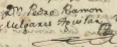 Dn. Pedro Ramon
Melgarez Aguilar